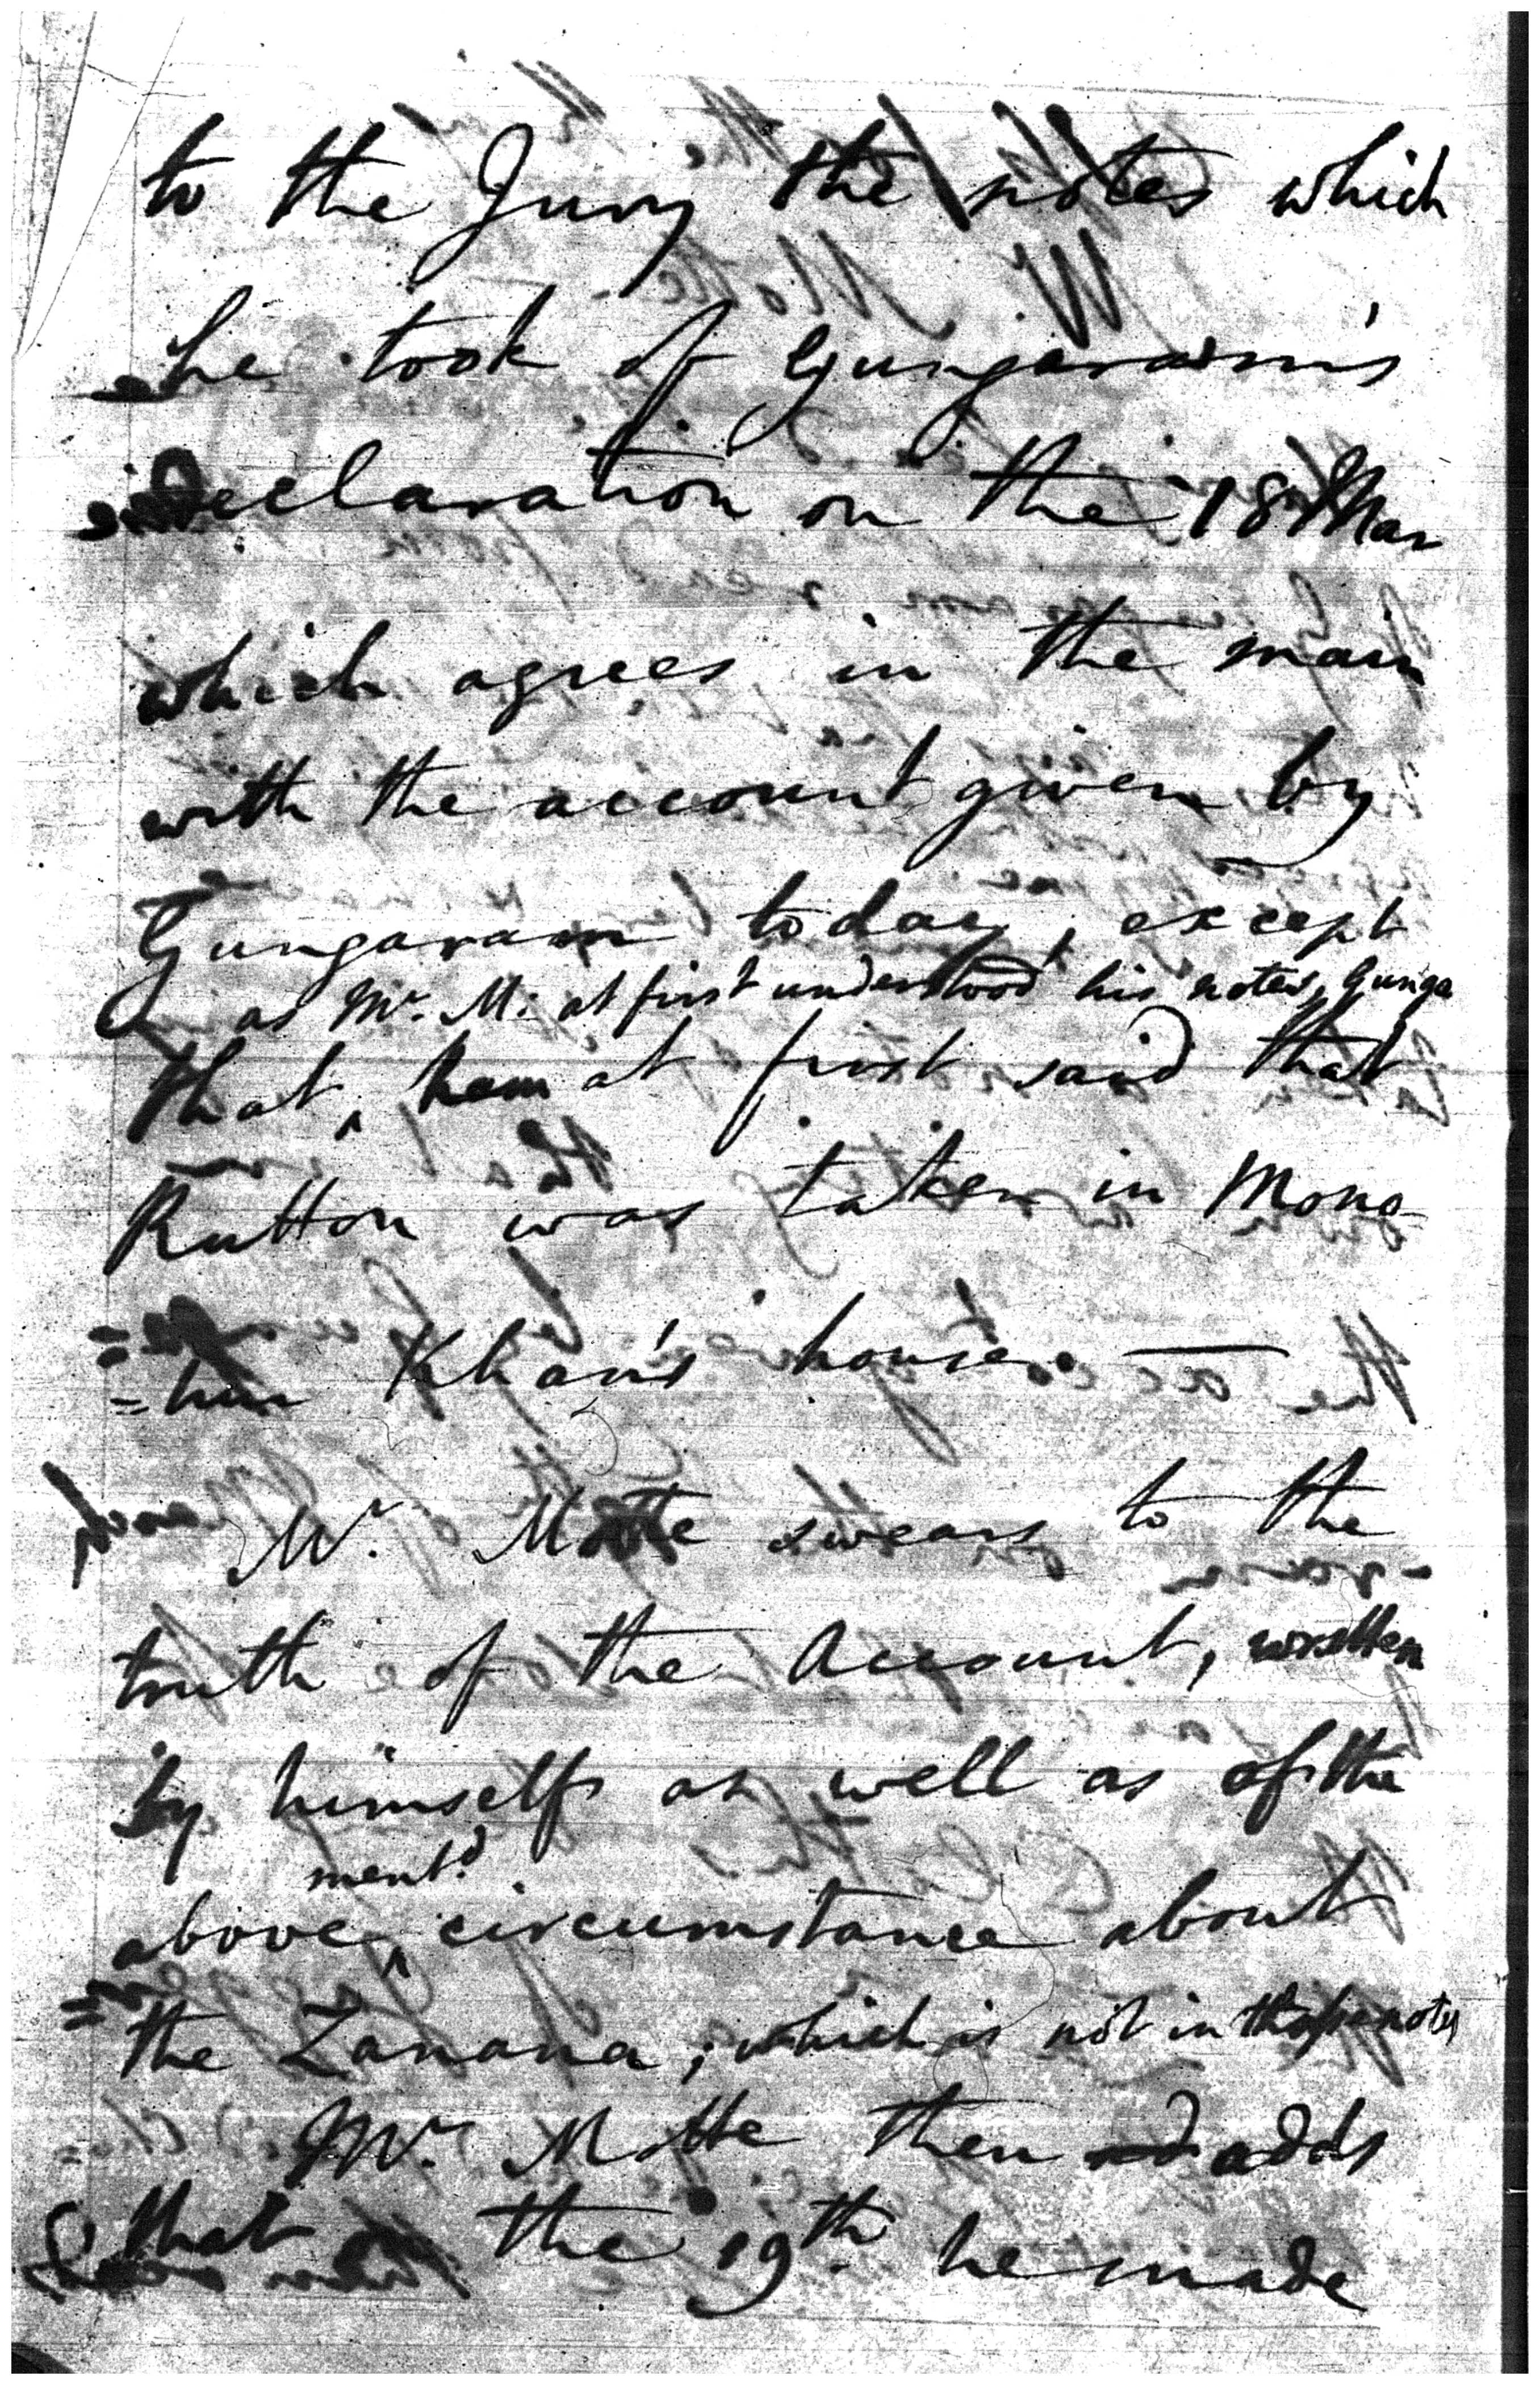 to the Jury the notes which
he took of Gungaram's
Declaration on the 18 Mar
which agrees in the main
with the account given by
Gungaram today, except
as Mr. M. at first understood his notes, Gunga
that ^ ham at first said that
Rutton was taken in Mono
=hur Khan's house. —
Mr. Motte swears to the
truth of the Account, written
by himself as well as of the
mentd.
above ^ circumstance about
the Zanana; which is not in these notes
Mr. Motte then adds
that on the 19th he made